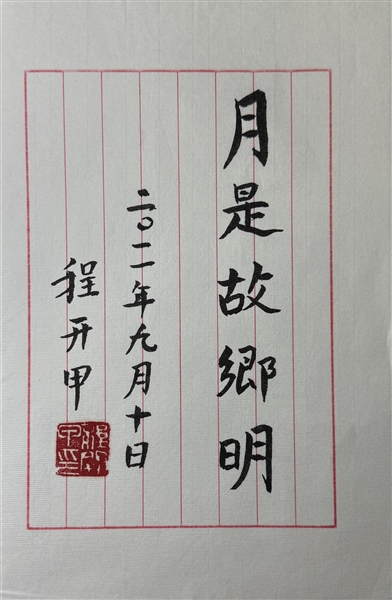 月是故鄉明
二〇二一年九月十日
程开甲